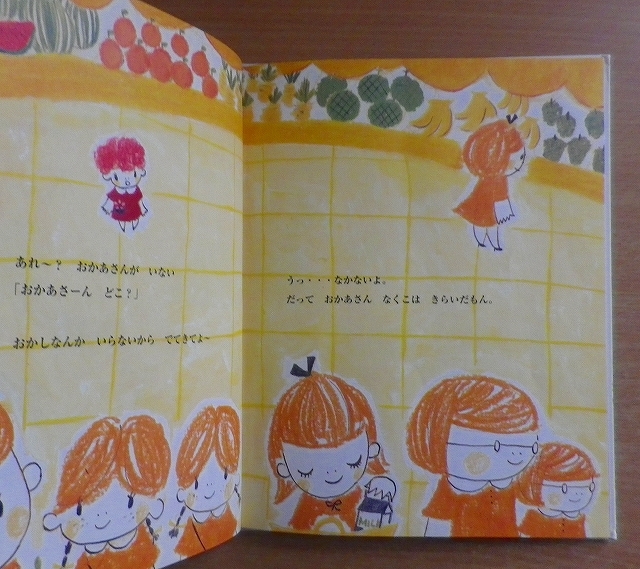 あれ〜？　おかあさんが　いない
「おかあさーん　どこ？」
おかしなんか　いらないから　でてきてよ〜
うっ・・・なかないよ。
だって　おかあさん　なくこは　きらいだもん。
MILK